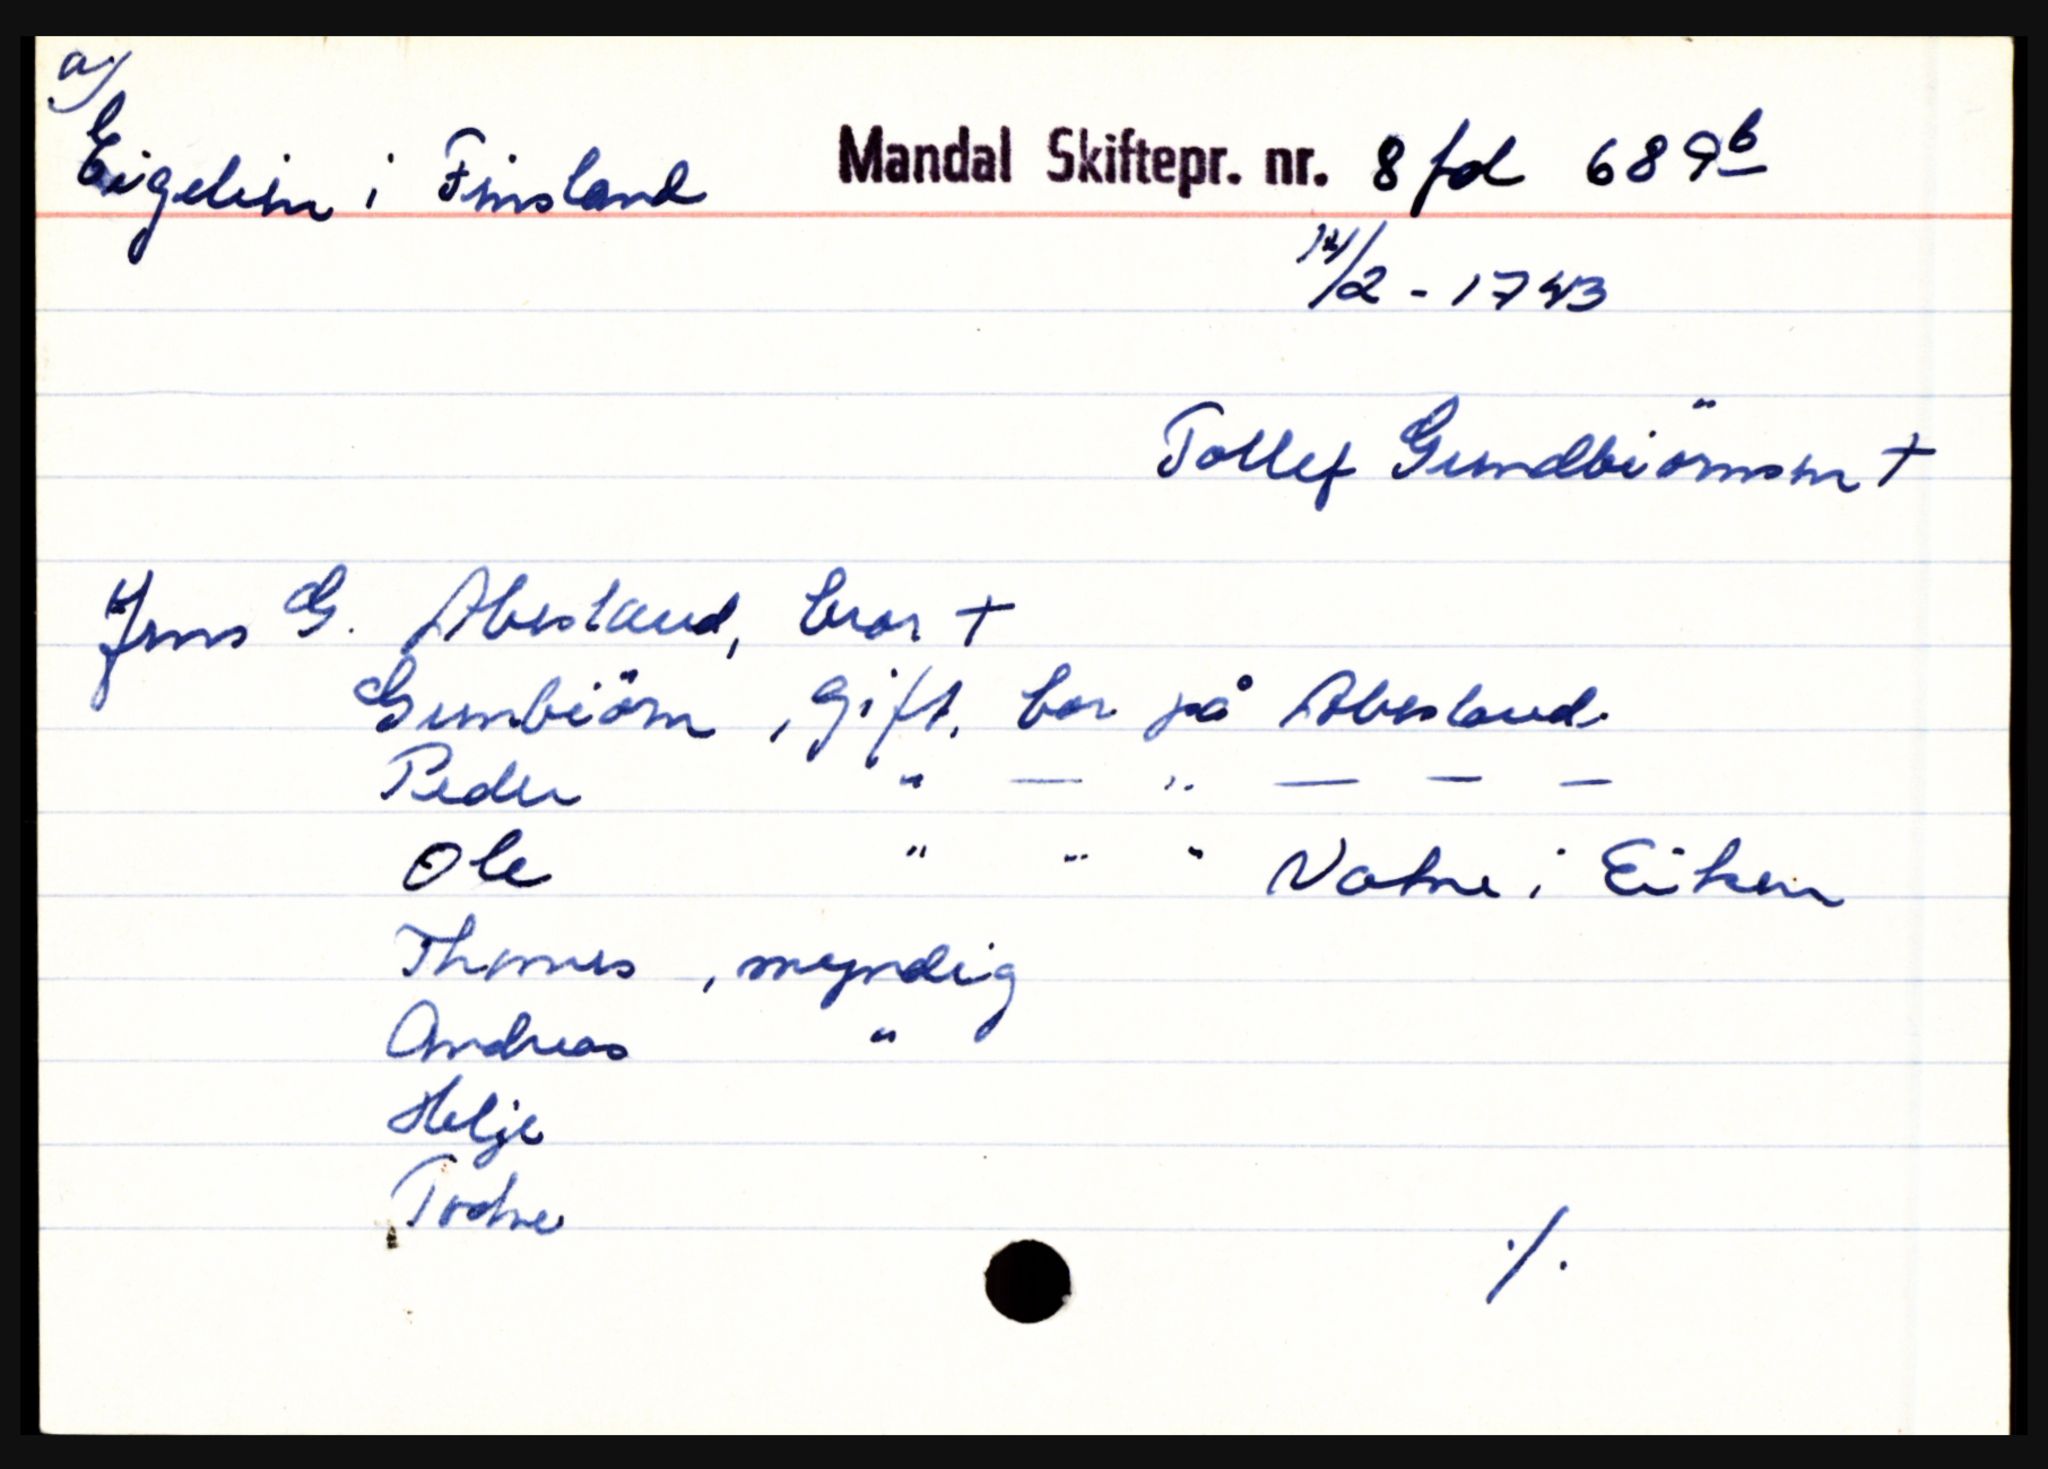 a/
Eigeliin i Finsland Mandal Skiftepr. nr. 8 fol 689b
14/2 - 1743
Tollef Gundbiörnsen +
Jens G. Abesland, bror +
Gunbiörn , gift, bor på Abesland.
Peder " — " — — —
Ole " " " Vatne i Eiken
Thomas , myndig
Andreas "
Helje
Todne
./.